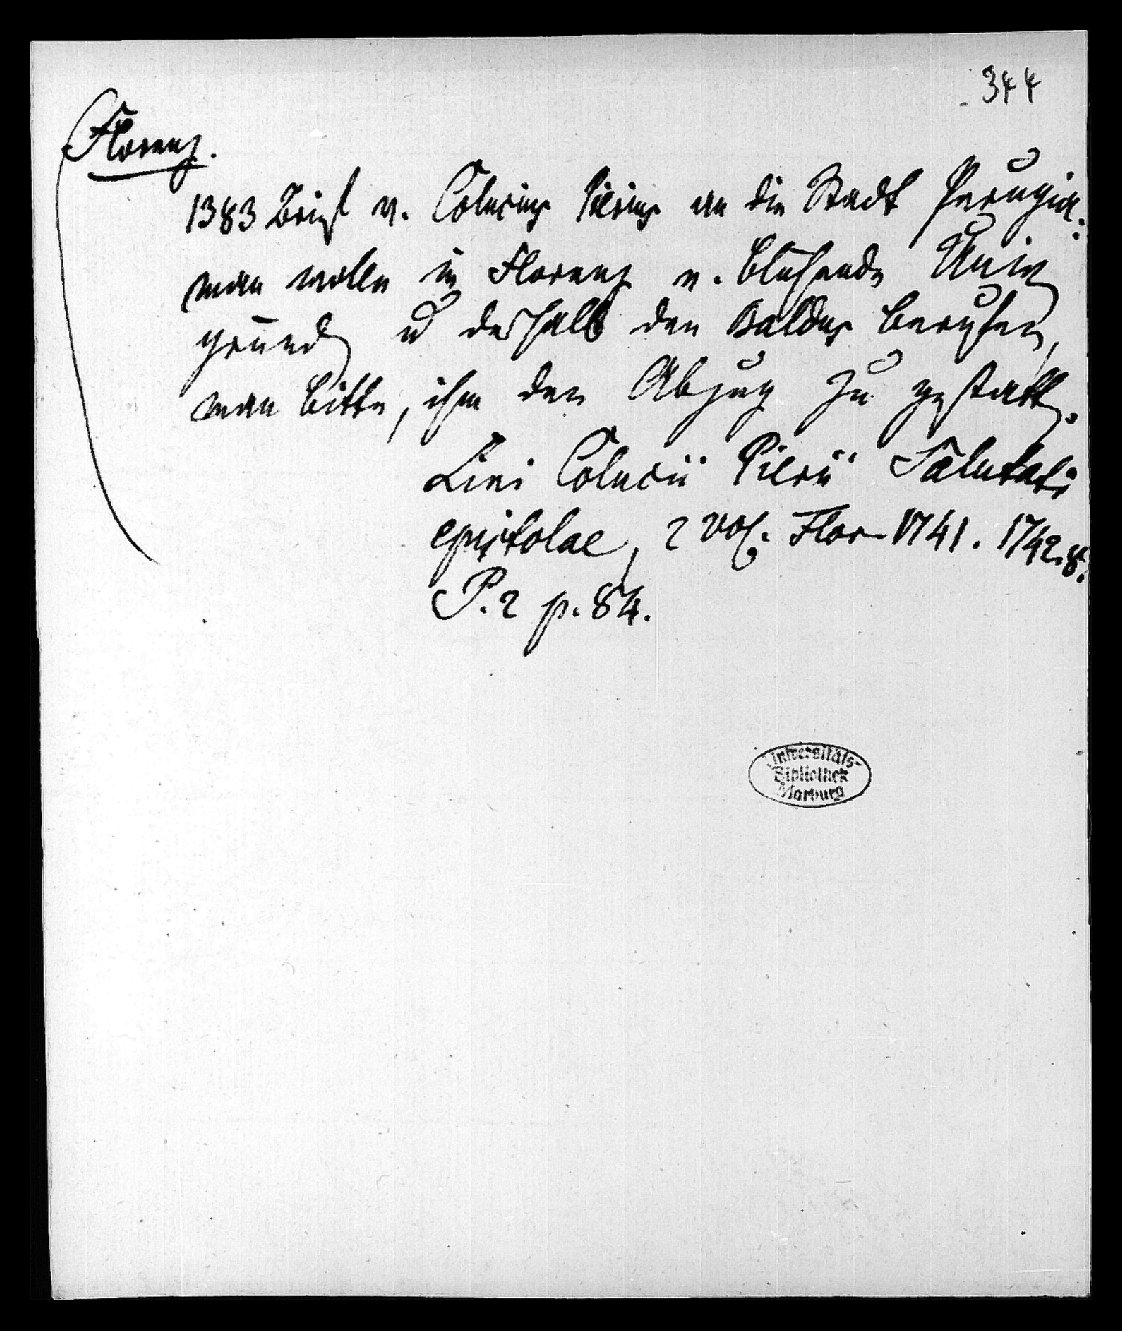 344
Florenz.
1383 Brief v. Colucius Pierius an die Stadt Perugia:
man wolle in Florenz e. blühende Univ
gründ u deshalb den Baldus berufen,
man bitte, ihm den Abzug zu gestatt.
Lini Colucii Pierii Salutati
epistolae, 2 vol. Flor. 1741. 1742. 8.
P. 2 p. 84.
Universitäts-
Bibliothek
Marburg